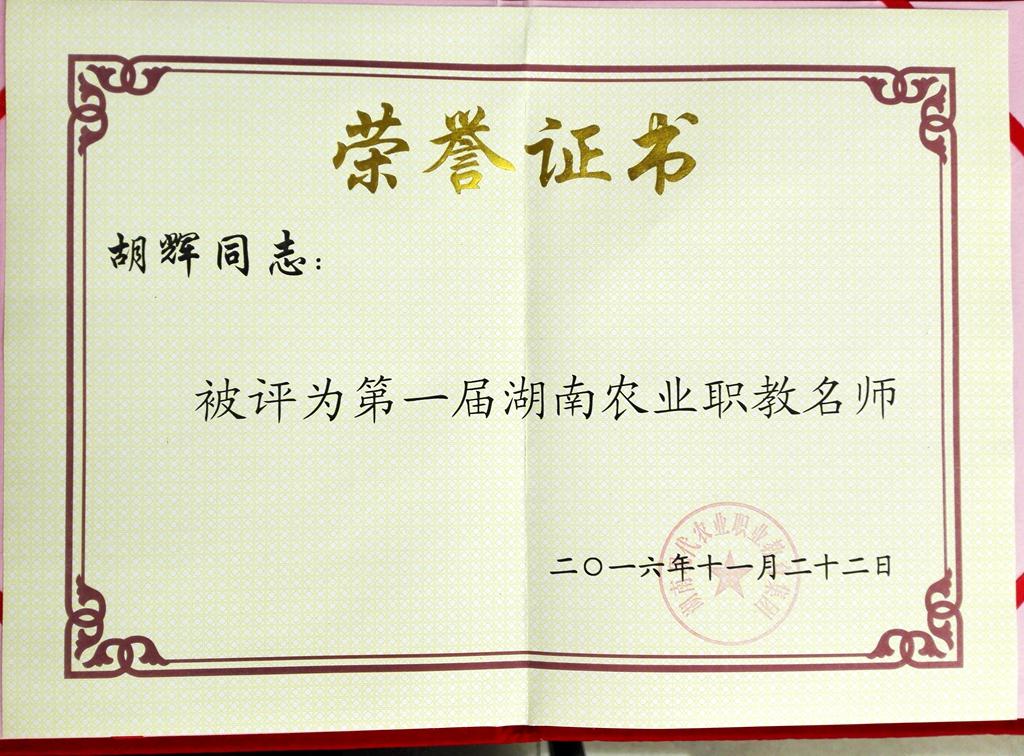 荣誉证书
胡辉同志：
被评为第一届湖南农业职教名师
二〇一六年十一月二十二日
湖南现代农业职业教育集团